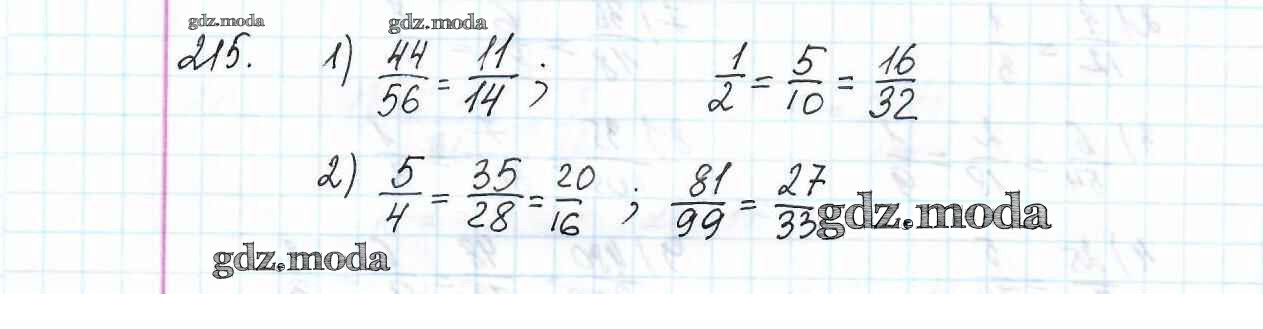 gdz.moda gdz.moda
215. 1) 44/56 = 11/14 ; 1/2 = 5/10 = 16/32
2) 5/4 = 35/28 = 20/16 ; 81/99 = 27/33 gdz.moda
gdz.moda